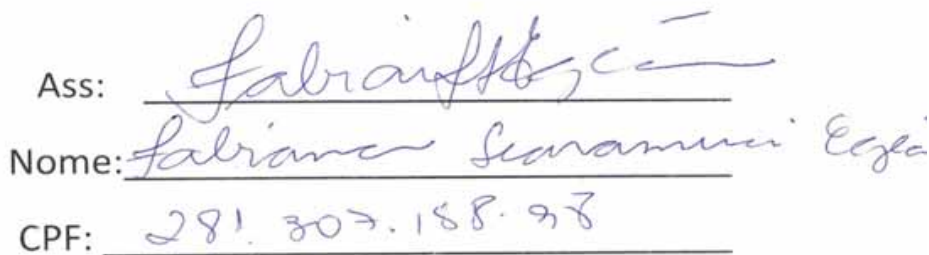 Ass:
Nome: Fabiana Scaramucci
CPF: 281.307.188.98